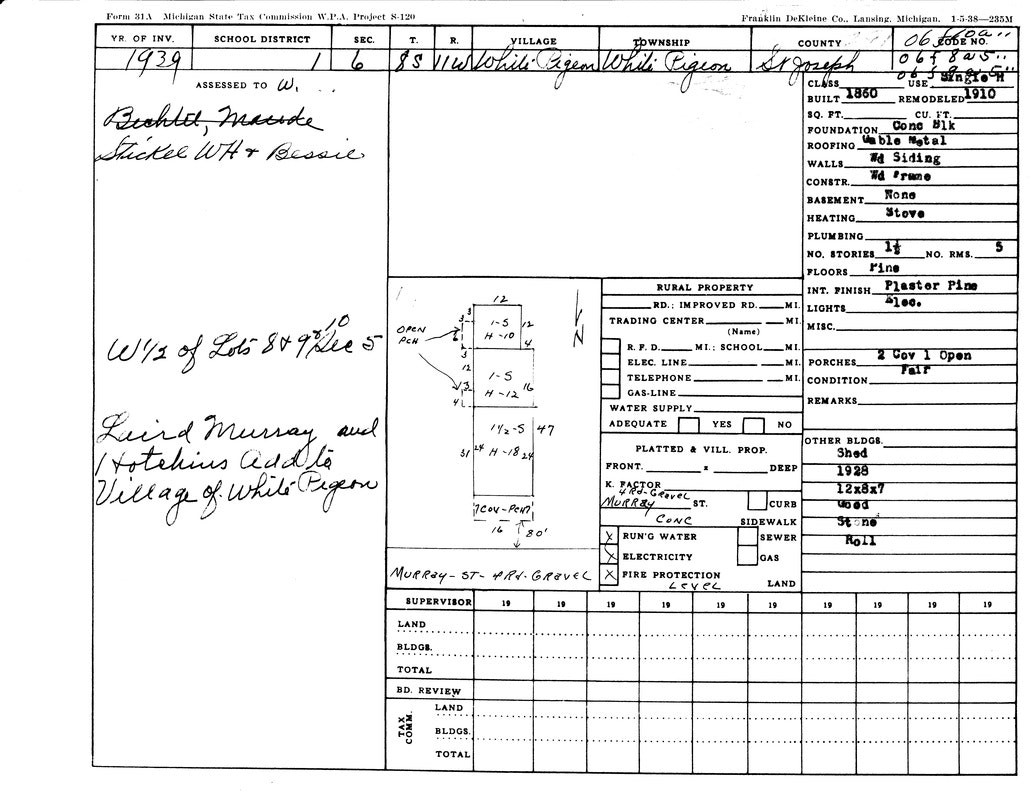 Form 31A Michigan State Tax Commission W.P.A. Project S-120
Franklin DeKleine Co., Lansing, Michigan. 1-5-38—235M
YR. OF INV. SCHOOL DISTRICT SEC. T. R. VILLAGE TOWNSHIP COUNTY CODE NO.
1939 1 6 8S 11W White Pigeon White Pigeon St Joseph
ASSESSED TO W.
Bechtel, Maude
Stickel WH & Bessie
W 1/2 of Lots 8 & 9 & 10 Sec 5
Laird Murray and
Hotchins Add to
Village of White Pigeon
CLASS USE Single H
BUILT 1860 REMODELED 1910
SQ. FT. CU. FT.
FOUNDATION Conc Blk
ROOFING Gable Metal
WALLS Wd Siding
CONSTR. Wd Frame
BASEMENT None
HEATING Stove
PLUMBING
NO. STORIES 1½ NO. RMS. 5
FLOORS Pine
INT. FINISH Plaster Pine
LIGHTS Elec.
MISC.
PORCHES 2 Cov 1 Open
CONDITION Fair
REMARKS
OTHER BLDGS.
Shed
1928
12x8x7
Wood
Stone
Roll
12
OPEN PCH
3
3
6
1-S
H-10
12
4
3
12
3
4
1-S
H-12
16
1½-S
47
31
24
H-18
24
7 COV-PCH 7
16
80'
N
MURRAY-ST-4RD-GRAVEL
RURAL PROPERTY
RD.; IMPROVED RD. MI.
TRADING CENTER MI.
(Name)
R. F. D. MI.; SCHOOL MI.
ELEC. LINE MI.
TELEPHONE MI.
GAS-LINE
WATER SUPPLY
ADEQUATE YES NO
PLATTED & VILL. PROP.
FRONT. x DEEP
K. FACTOR
4 RD-GRAVEL
MURRAY ST. CURB
CONC SIDEWALK
X RUN'G WATER SEWER
X ELECTRICITY GAS
X FIRE PROTECTION
LEVEL LAND
SUPERVISOR 19 19 19 19 19 19 19 19 19 19
LAND
BLDGS.
TOTAL
BD. REVIEW
TAX COMM.
LAND
BLDGS.
TOTAL